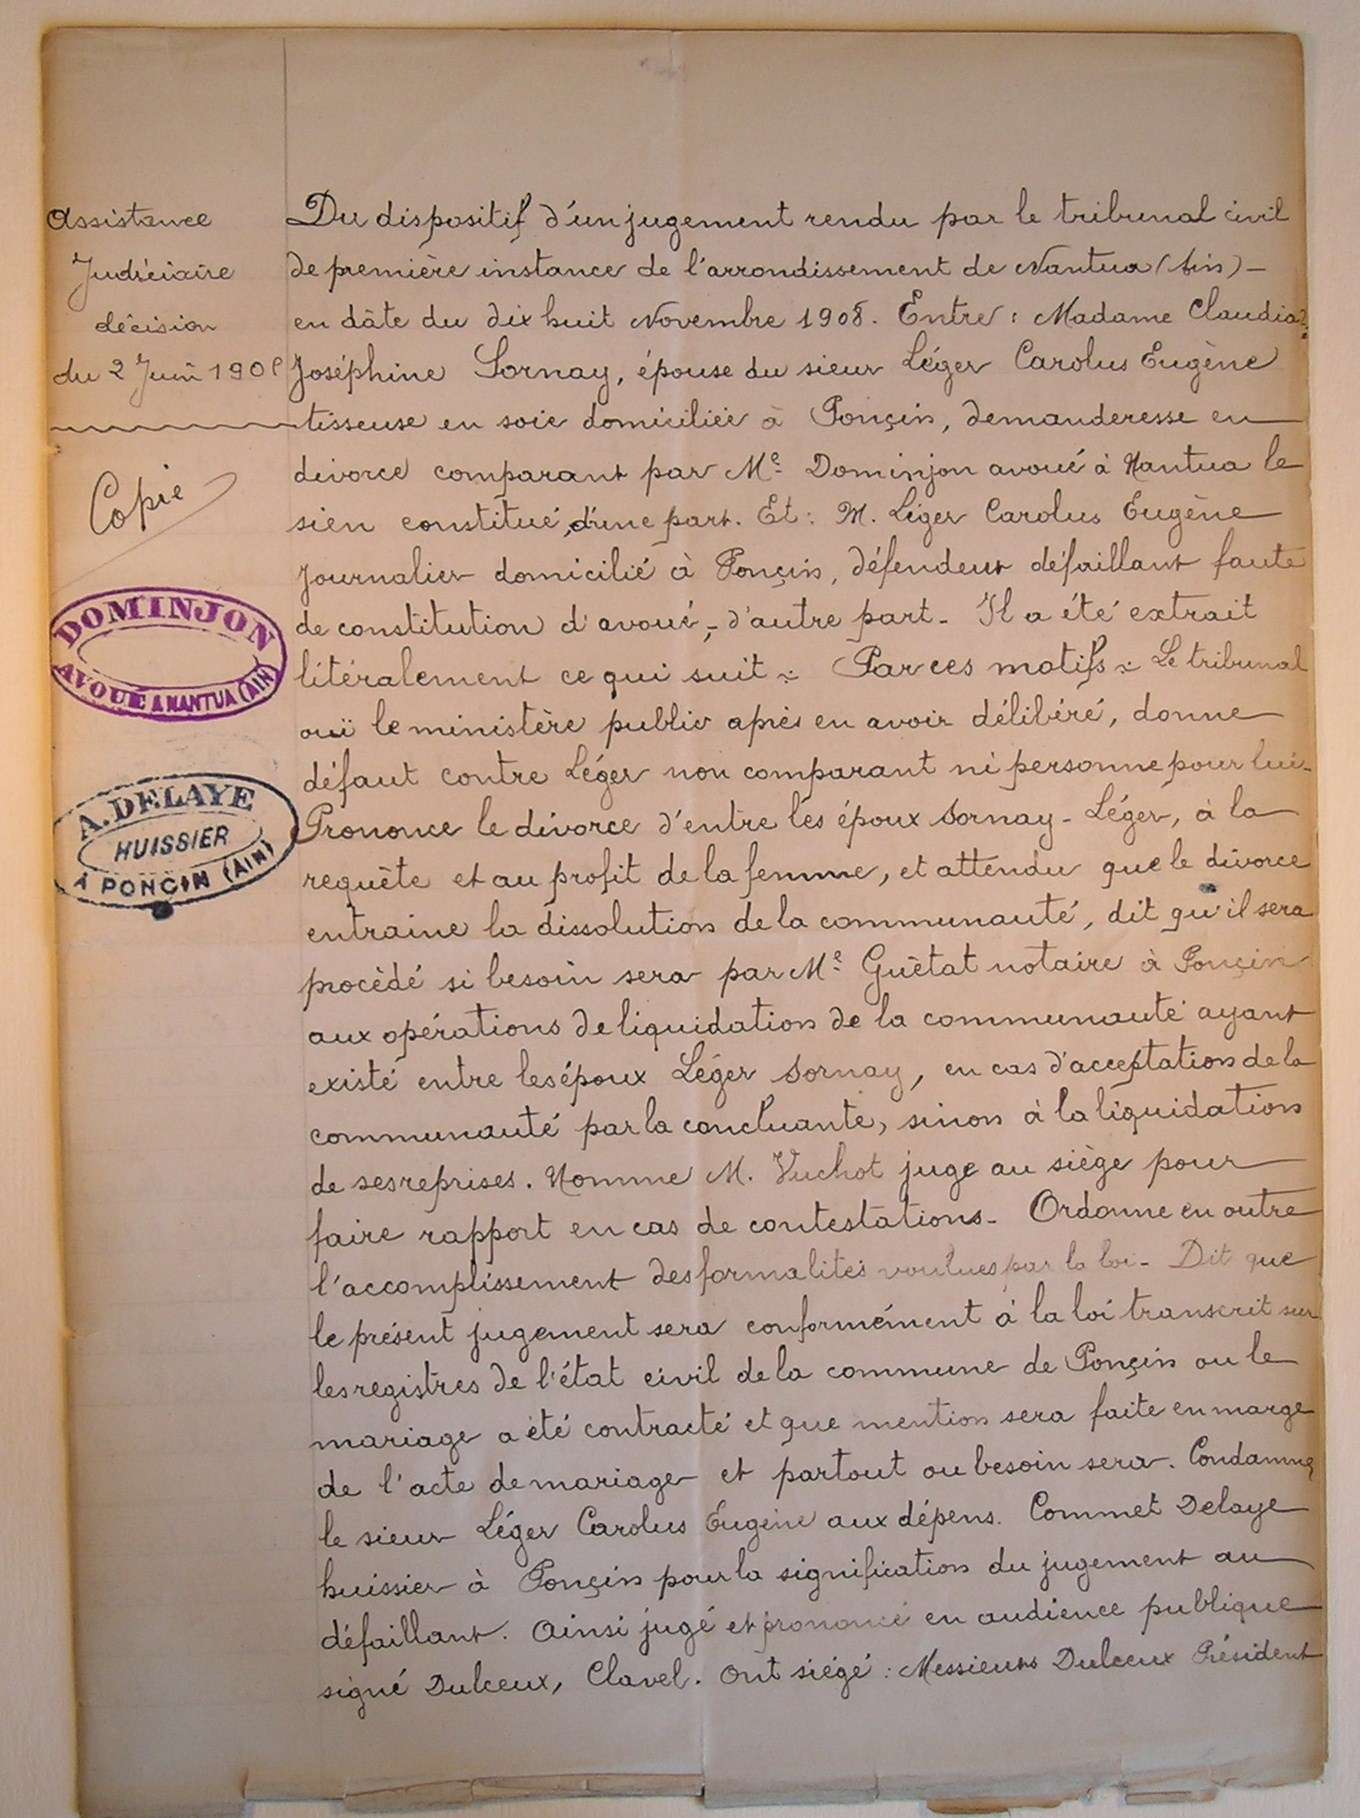 Assistance
Judiciaire
décision
du 2 Juin 190
Copie
DOMINJON
AVOUÉ A NANTUA (AIN)
A. DELAYE
HUISSIER
A PONCIN (AIN)
Du dispositif d'un jugement rendu par le tribunal civil
de première instance de l'arrondissement de Nantua (Ain) -
en dâte du dix huit Novembre 1908. Entre : Madame Claudia
Joséphine Sornay, épouse du sieur Léger Carolus Eugène
tisseuse en soie domiciliée à Ponçin, demanderesse en
divorce comparant par Me Dominjon avoué à Nantua le
sien constitué, d'une part. Et : M. Léger Carolus Eugène
journalier domicilié à Ponçin, défendeur défaillant faute
de constitution d'avoué, - d'autre part - Il a été extrait
litéralement ce qui suit : Par ces motifs : Le tribunal
ouï le ministère public après en avoir délibéré, donne
défaut contre Léger non comparant ni personne pour lui -
Prononce le divorce d'entre les époux Sornay - Léger, à la
requête et au profit de la femme, et attendu que le divorce
entraine la dissolution de la communauté, dit qu'il sera
procèdé si besoin sera par Me Guètat notaire à Ponçin
aux opérations de liquidation de la communauté ayant
existé entre les époux Léger Sornay, en cas d'acceptation de la
communauté par la concluante, sinon à la liquidation
de ses reprises. Nomme M. Vuchot juge au siège pour
faire rapport en cas de contestations - Ordonne en outre
l'accomplissement des formalités voulues par la loi - Dit que
le présent jugement sera conformément à la loi transcrit sur
les registres de l'état civil de la commune de Ponçin ou le
mariage a été contracté et que mention sera faite en marge
de l'acte de mariage et partout ou besoin sera. Condamne
le sieur Léger Carolus Eugène aux dépens. Commet Delaye
huissier à Ponçin pour la signification du jugement au
défaillant. Ainsi jugé et prononcé en audience publique
signé Dulceux, Clavel. Ont siégé : Messieurs Dulceux Président